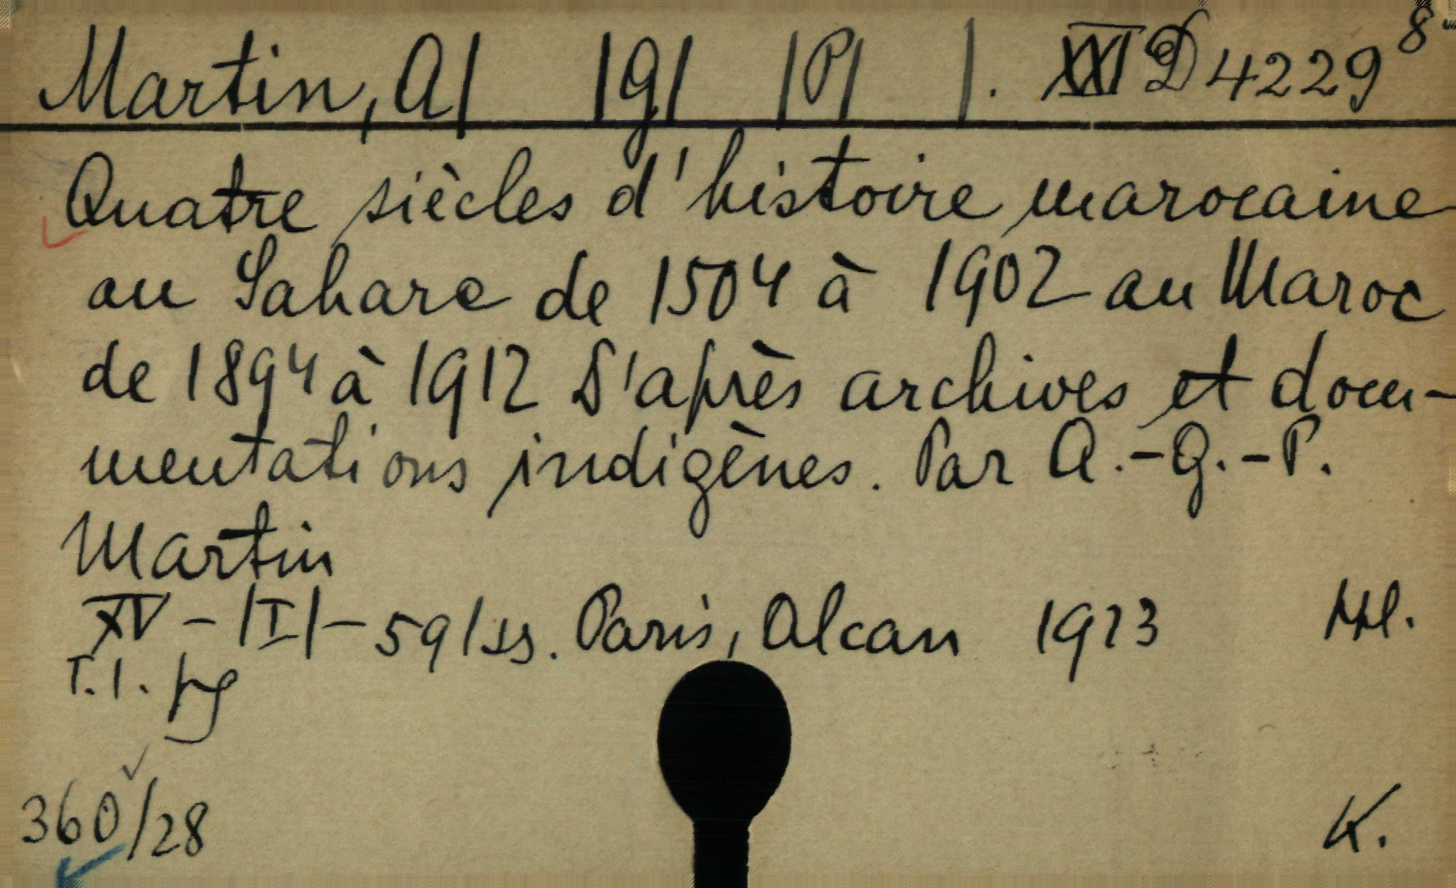 Martin, A| |g| |P| |. XXI D 4229 8°
Quatre siècles d'histoire marocaine
au Sahara de 1504 à 1902 au Maroc
de 1894 à 1912 D'après archives et docu-
mentations indigènes. Par A.-G.-P.
Martin
XV - |I| - 591 ss. Paris, Alcan 1923
T.1.
360/28 K.